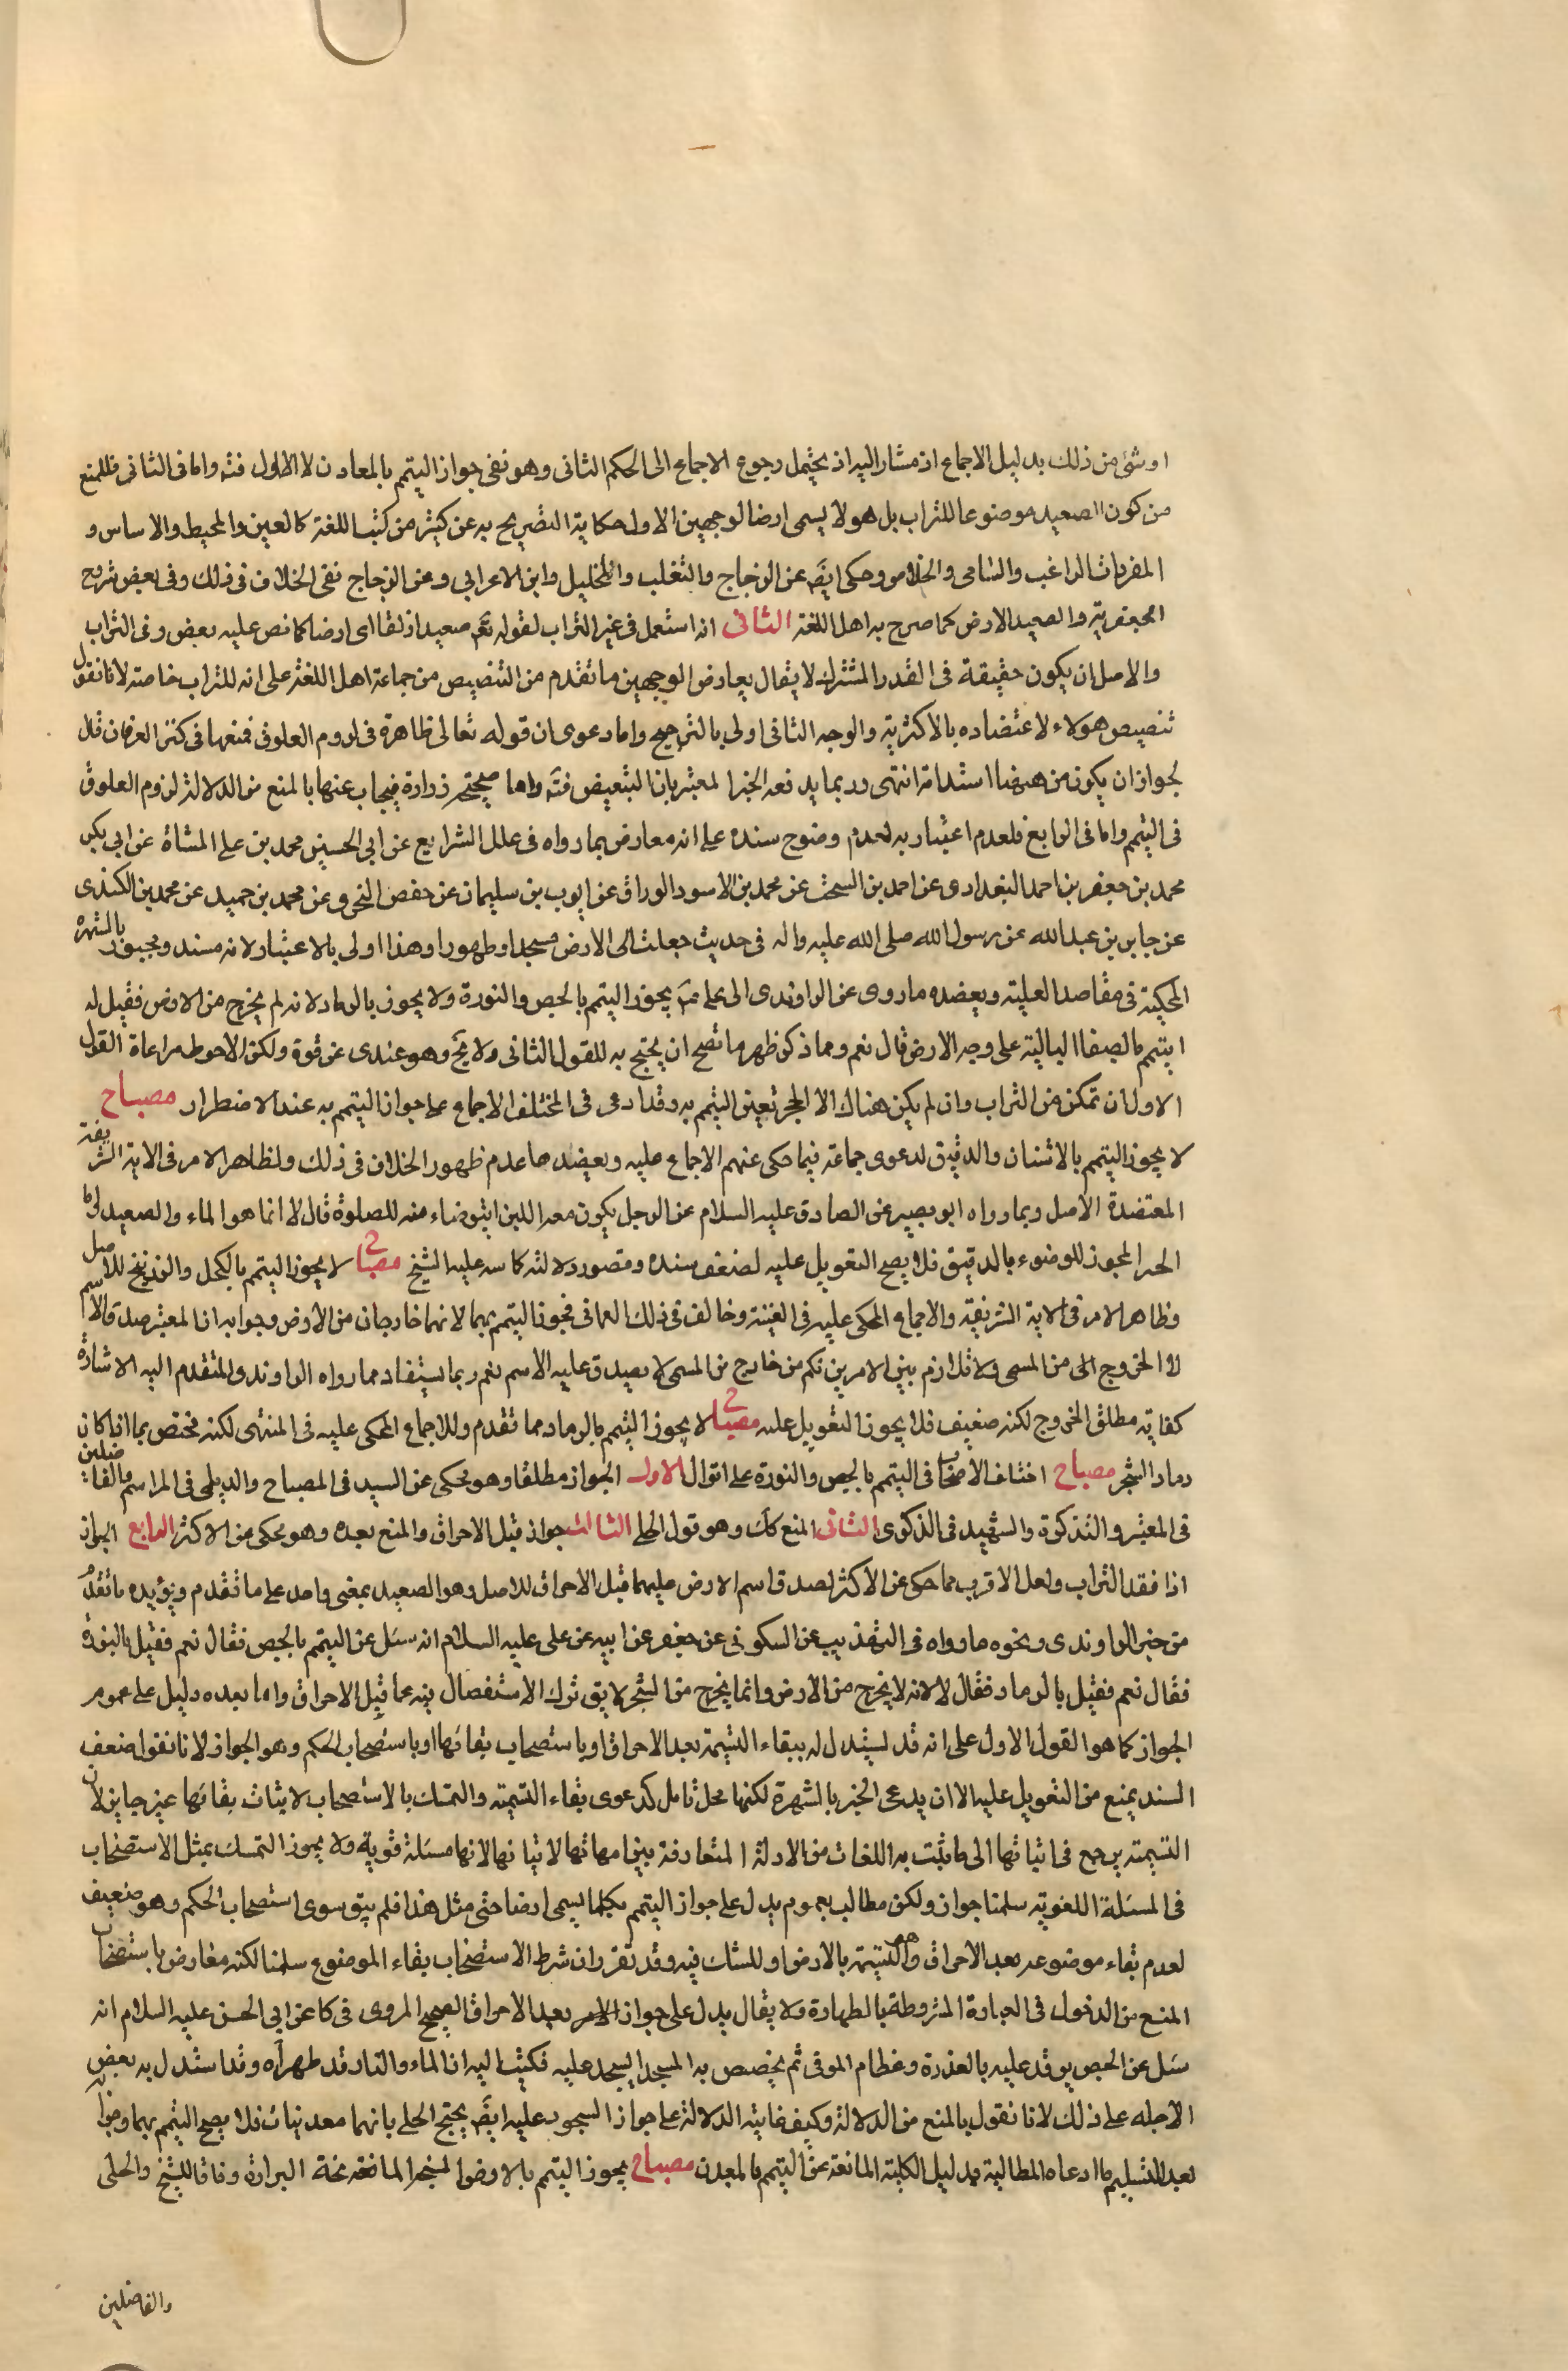 او شئ من ذلك بدليل الاجماع اذ مشار اليه اذ يحتمل رجوع الاجماع الى الحكم الثانى وهو نفى جواز التيمم بالمعادن لا الاول فتم واما فى الثانى فللمنع
من كون الصعيد موضوعا للتراب بل هو لا يسمى ارضا لوجهين الاول حكاية التصريح به عن كثير من كتب اللغة كالعين والمحيط والاساس و
المفردات للراغب والسامى والخلاص وحكى ايضا عن الزجاج والثغلب والخليل وابن الاعرابى وعن الزجاج نفى الخلاف فى ذلك وفى بعض شروح
الجعفرية والصعيد الارض كما صرح به اهل اللغة الثانى انه استعمل فى غير التراب لقوله تعم صعيدا زلقا اى ارضا كما نص عليه بعض وفى التراب
والاصل ان يكون حقيقة فى القدر المشترك لا يقال يعارض الوجهين ما تقدم من التنصيص من جماعة اهل اللغة على انه للتراب خاصة لانا نقول
تنصيص هولاء لاعتضاده بالاكثرية والوجه الثانى اولى بالترجيح واما دعوى ان قوله تعالى ظاهرة فى لزوم العلوق فمنعها فى كنز العرفان قال
لجواز ان يكون من ههنا ابتدائية انتهى وربما يدفعه الخبر المعتبر بان التبعيض فتم واما صحيحة زرارة فيجاب عنها بالمنع من الدلالة لزوم العلوق
فى التيمم واما فى الرابع فلعدم اعتبار به لعدم وضوح سنده على انه معارض بما رواه فى علل الشرايع عن ابى الحسين محمد بن على المشاة عن ابى بكر
محمد بن جعفر بن احمد البغدادى عن احمد بن السحت عن محمد بن الاسود الوراق عن ايوب بن سليمان عن حفص النحوى عن محمد بن حميد عن محمد بن الكندى
عن جابر بن عبد الله عن رسول الله صلى الله عليه واله فى حديث جعلت لى الارض مسجدا وطهورا وهذا اولى بالاعتبار لانه مسند ومجبور بالشهرة
المحكية فى مقاصد العلية ويعضده ما روى عن الراوندى الى على يجوز التيمم بالجص والنورة ولا يجوز بالرماد لانه لم يخرج من الارض فقيل له
ايتيمم بالصفا البالية على وجه الارض قال نعم ومما ذكر ظهر ما تصح ان يحتج به للقول الثانى ولا يخ وهو عندى عن قوة ولكن الاحوط مراعاة القول
الاول ان تمكن من التراب وان لم يكن هناك الا الحجر تعين التيمم به وقد ادعى فى المختلف الاجماع على جواز التيمم به عند الاضطرار مصباح
لا يجوز التيمم بالاشنان والدقيق لدعوى جماعة فيما حكى عنهم الاجماع عليه ويعضدها عدم ظهور الخلاف فى ذلك ولظاهر الامر فى الاية الشريفة
المعتضدة الاصل وبما رواه ابو بصير عن الصادق عليه السلام عن الرجل يكون معه اللبن ايتوضاء منه للصلوة قال لا انما هو الماء والصعيد واما
الخبر المجوز للوضوء بالدقيق فلا يصح التعويل عليه لضعف سنده وقصور دلالته كما نبه عليه الشيخ مصباح لا يجوز التيمم بالكحل والزرنيخ للاصل
وظاهر الامر فى الاية الشريفة والاجماع المحكى عليه فى الغنية وخالف فى ذلك العمانى فجوز التيمم بهما لانهما خارجان من الارض وجوابه ان المعتبر صدق الاسم
لا الخروج الى من المسمى ولا تلازم بين الامرين فكم من خارج من المسمى لا يصدق عليه الاسم نعم ربما يستفاد مما رواه الراوندى المتقدم اليه الاشارة
كفاية مطلق الخروج لكنه ضعيف فلا يجوز التعويل عليه مصباح لا يجوز التيمم بالرماد مما تقدم وللاجماع المحكى عليه فى المنتهى لكنه مختص بما اذا كان
رماد الشجر مصباح اختلف الاصحاب فى التيمم بالجص والنورة على اقوال الاول الجواز مطلقا وهو محكى عن السيد فى المصباح والديلمى فى المراسم والفاضلين
فى المعتبر والتذكرة والشهيد فى الذكرى الثانى المنع كك وهو قول الحلى الثالث جواز قبل الاحراق والمنع بعده وهو محكى عن الاكثر الرابع الجواز
اذا فقد التراب ولعل الاقرب مما حكى عن الاكثر لصدق اسم الارض عليهما قبل الاحراق للاصل وهو الصعيد بمعنى واحد على ما تقدم ويؤيده ما تقدم
من خبر الراوندى ونحوه ما رواه فى التهذيب عن السكونى عن جعفر عن ابيه عن على عليه السلام انه سئل عن التيمم بالجص فقال نعم فقيل بالنورة
فقال نعم فقيل بالرماد فقال لا لانه لا يخرج من الارض وانما يخرج من الشجر لا يق ترك الاستفصال فيه عما قبل الاحراق واما بعده دليل على عموم
الجواز كما هو القول الاول على انه قد يستدل له ببقاء التسمية بعد الاحراق او باستصحاب بقائها او باستصحاب الحكم وهو الجواز لانا نقول ضعف
السند يمنع من التعويل عليه الا ان يدعى الخبر بالشهرة لكنها محل تامل كدعوى بقاء التسمية والتمسك بالاستصحاب لاثبات بقائها غير جايز لان
التسمية يرجع فى اثباتها الى ما يثبت به اللغات من الادلة المتعارفة بين امهاتها لاثباتها لانها مسئلة قوية ولا يجوز التمسك بمثل الاستصحاب
فى المسئلة اللغوية سلمنا جواز ولكن مطالب بعموم يدل على جواز التيمم بكلما يسمى ارضا حتى مثل هذا فلم يبق سوى استصحاب الحكم وهو ضعيف
لعدم بقاء موضوعه بعد الاحراق وهو التسمية بالارض او للشك فيه وقد تقرر ان شرط الاستصحاب بقاء الموضوع سلمنا لكنه معارض باستصحاب
المنع من الدخول فى العبادة المشروطة بالطهارة ولا يقال يدل على جواز الامر بعد الاحراق الصحيح المروى فى كا عن ابى الحسن عليه السلام انه
سئل عن الجص يوقد عليه بالعذرة وعظام الموتى ثم يجصص به المسجد ايسجد عليه فكتب اليه ان الماء والنار قد طهراه وقد استدل به بعض
الاجله على ذلك لانا نقول بالمنع من الدلالة وكيف غاية الدلالة على جواز السجود عليه ايضا يحتج الحلى بانهما معدنيان فلا يصح التيمم بهما وجوابه
بعد التسليم ما ادعاه المطالبة بدليل الكلية المانعة عن التيمم بالمعدن مصباح يجوز التيمم بالارض البراق وفاقا للشيخ والحلى
والفاضلين